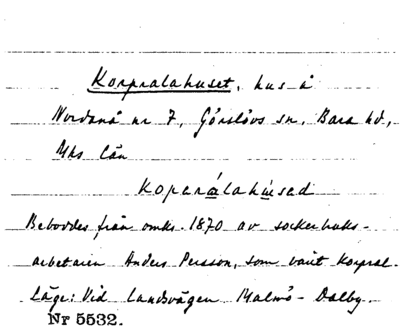 Korpralahuset, hus å
Nordanå nr 7, Görslövs sn, Bara hd,
Mhs län
Koparálahúsad
Beboddes från omkr. 1870 av sockerbruks-
arbetaren Anders Persson, som varit korpral.
Läge: Vid landsvägen Malmö - Dalby.
Nr 5532.